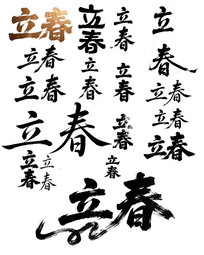 立春
立春
立春
立春
立春
立春
立春
立春
立春
立春
立春
立春
立春
立春
立春
立春
立春